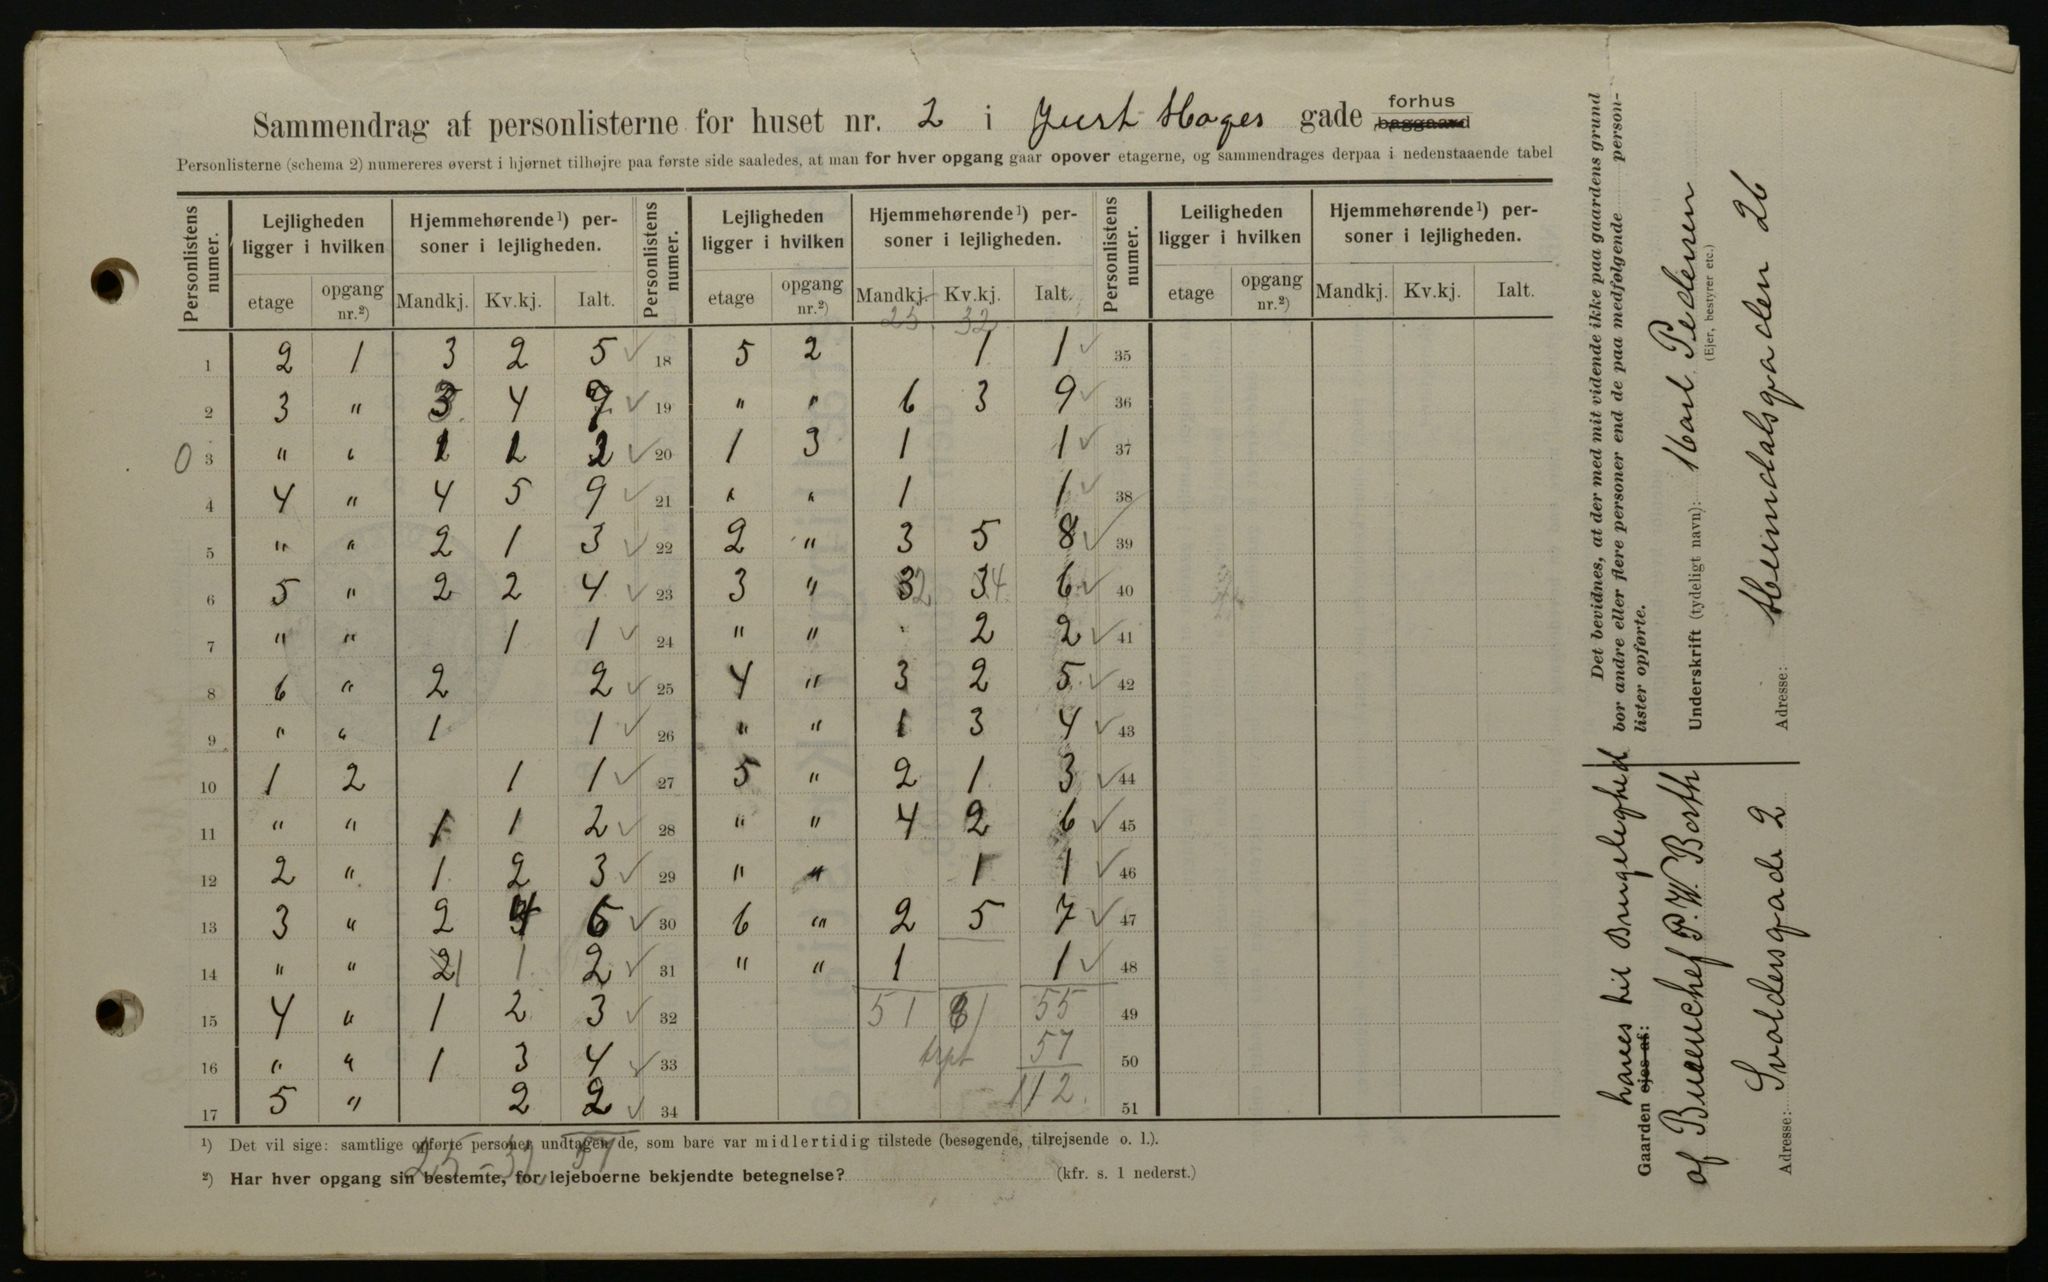 Sammendrag af personlisterne for huset nr. 2 i Just Hages gade forhus baggaard
Personlisterne (schema 2) numereres øverst i hjørnet tilhøjre paa første side saaledes, at man for hver opgang gaar opover etagerne, og sammendrages derpaa i nedenstaaende tabel
Personlistens numer. Lejligheden ligger i hvilken Hjemmehørende¹) personer i lejligheden. Personlistens numer. Lejligheden ligger i hvilken Hjemmehørende¹) personer i lejligheden. Personlistens numer. Leiligheden ligger i hvilken Hjemmehørende¹) personer i lejligheden.
etage opgang nr.²) Mandkj. Kv.kj. Ialt. etage opgang nr.²) Mandkj. Kv.kj. Ialt. etage opgang nr.²) Mandkj. Kv.kj. Ialt.
25 32
1 2 1 3 2 5 ✓ 18 5 2 1 1 ✓ 35
2 3 " 3 4 7 ✓ 19 " " 6 3 9 ✓ 36
0 3 " " 1 1 2 ✓ 20 1 3 1 1 ✓ 37
4 4 " 4 5 9 ✓ 21 " " 1 1 ✓ 38
5 " " 2 1 3 ✓ 22 2 " 3 5 8 ✓ 39
6 5 " 2 2 4 ✓ 23 3 " 3 2 3 4 6 ✓ 40
7 " " 1 1 ✓ 24 " " 2 2 ✓ 41
8 6 " 2 2 ✓ 25 4 " 3 2 5 ✓ 42
9 " " 1 1 ✓ 26 " " 1 3 4 ✓ 43
10 1 2 1 1 ✓ 27 5 " 2 1 3 ✓ 44
11 " " 1 1 2 ✓ 28 " " 4 2 6 ✓ 45
12 2 " 1 2 3 ✓ 29 " " 1 1 ✓ 46
13 3 " 2 4 6 ✓ 30 6 " 2 5 7 ✓ 47
14 " " 2 1 1 2 ✓ 31 " " 1 1 ✓ 48
15 4 " 1 2 3 ✓ 32 51 61 55 49
16 " " 1 3 4 ✓ 33 trpt 57 50
17 5 " 2 2 ✓ 34 112. 51
25 - 32 57
¹) Det vil sige: samtlige opførte personer undtagen de, som bare var midlertidig tilstede (besøgende, tilrejsende o. l.).
²) Har hver opgang sin bestemte, for lejeboerne bekjendte betegnelse? (kfr. s. 1 nederst.)
Det bevidnes, at der med mit vidende ikke paa gaardens grund
bor andre eller flere personer end de paa medfølgende person-
lister opførte.
Underskrift (tydeligt navn): Karl Pedersen
(Ejer, bestyrer etc.)
Adresse: Heimdalsgaden 26
haves til Brugelighed
Gaarden ejes af:
af P. W. Borth
Adresse: Svoldersgade 2